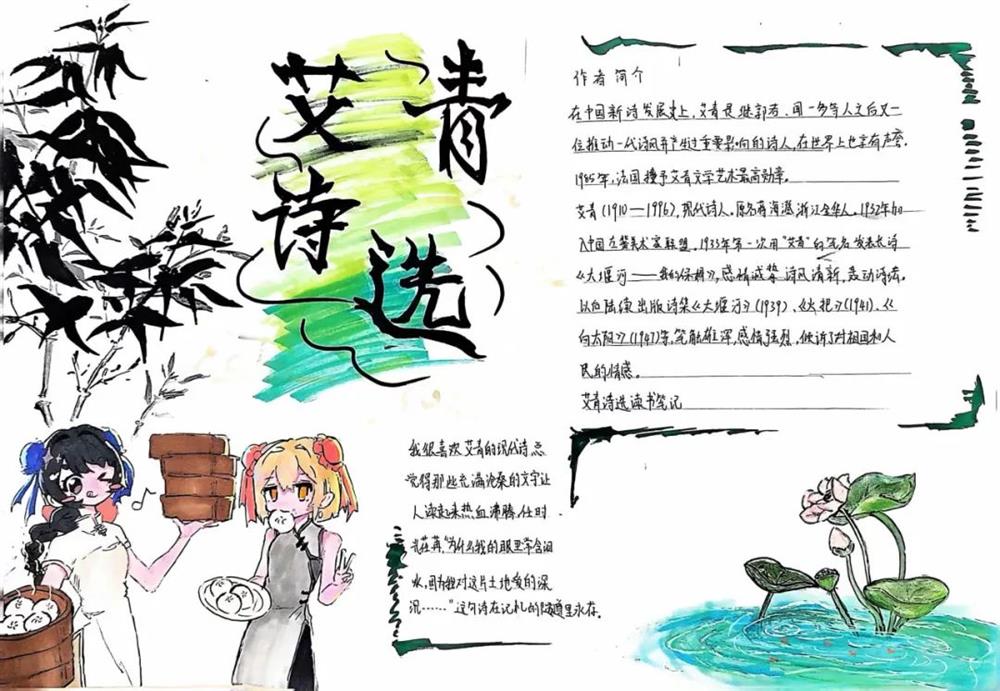 艾青
诗选
作者简介
在中国新诗发展史上,艾青是继郭若、闻一多等人之后又一
位推动一代诗风并产生过重要影响的诗人,在世界上也享有声誉.
1985年,法国授予艾青文学艺术最高勋章。
艾青(1910—1996),现代诗人,原名蒋海澄,浙江金华人。1932年加
入中国左翼美术家联盟。1933年第一次用"艾青"的笔名发表长诗
《大堰河——我的保姆》,感情诚挚,诗风清新,轰动诗坛。
以后陆续出版诗集《大堰河》(1939)、《火把》(1941)、《
向太阳》(1947)等,笔触雄浑,感情强烈,倾诉了对祖国和人
民的情感。
艾青诗选读书笔记
我很喜欢艾青的现代诗总
觉得那些充满沧桑的文字让
人读起来热血沸腾,任时
光荏苒,"为什么我的眼里常含泪
水,因为我对这片土地爱的深
沉……"这句诗在记忆的隧道里永存.